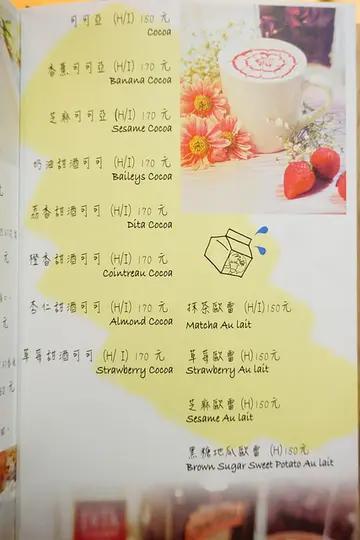 可可亞 (H/I) 150 元
Cocoa
香蕉可可亞 (H/I) 170 元
Banana Cocoa
芝麻可可亞 (H/I) 170 元
Sesame Cocoa
奶油甜酒可可 (H/I) 170 元
Baileys Cocoa
荔香甜酒可可 (H/I) 170 元
Dita Cocoa
橙香甜酒可可 (H/I) 170 元
Cointreau Cocoa
杏仁甜酒可可 (H/I) 170 元
Almond Cocoa
草莓甜酒可可 (H/I) 170 元
Strawberry Cocoa
抹茶歐蕾 (H/I)150元
Matcha Au lait
草莓歐蕾 (H)150元
Strawberry Au lait
芝麻歐蕾 (H)150元
Sesame Au lait
黑糖地瓜歐蕾 (H)150元
Brown Sugar Sweet Potato Au lait